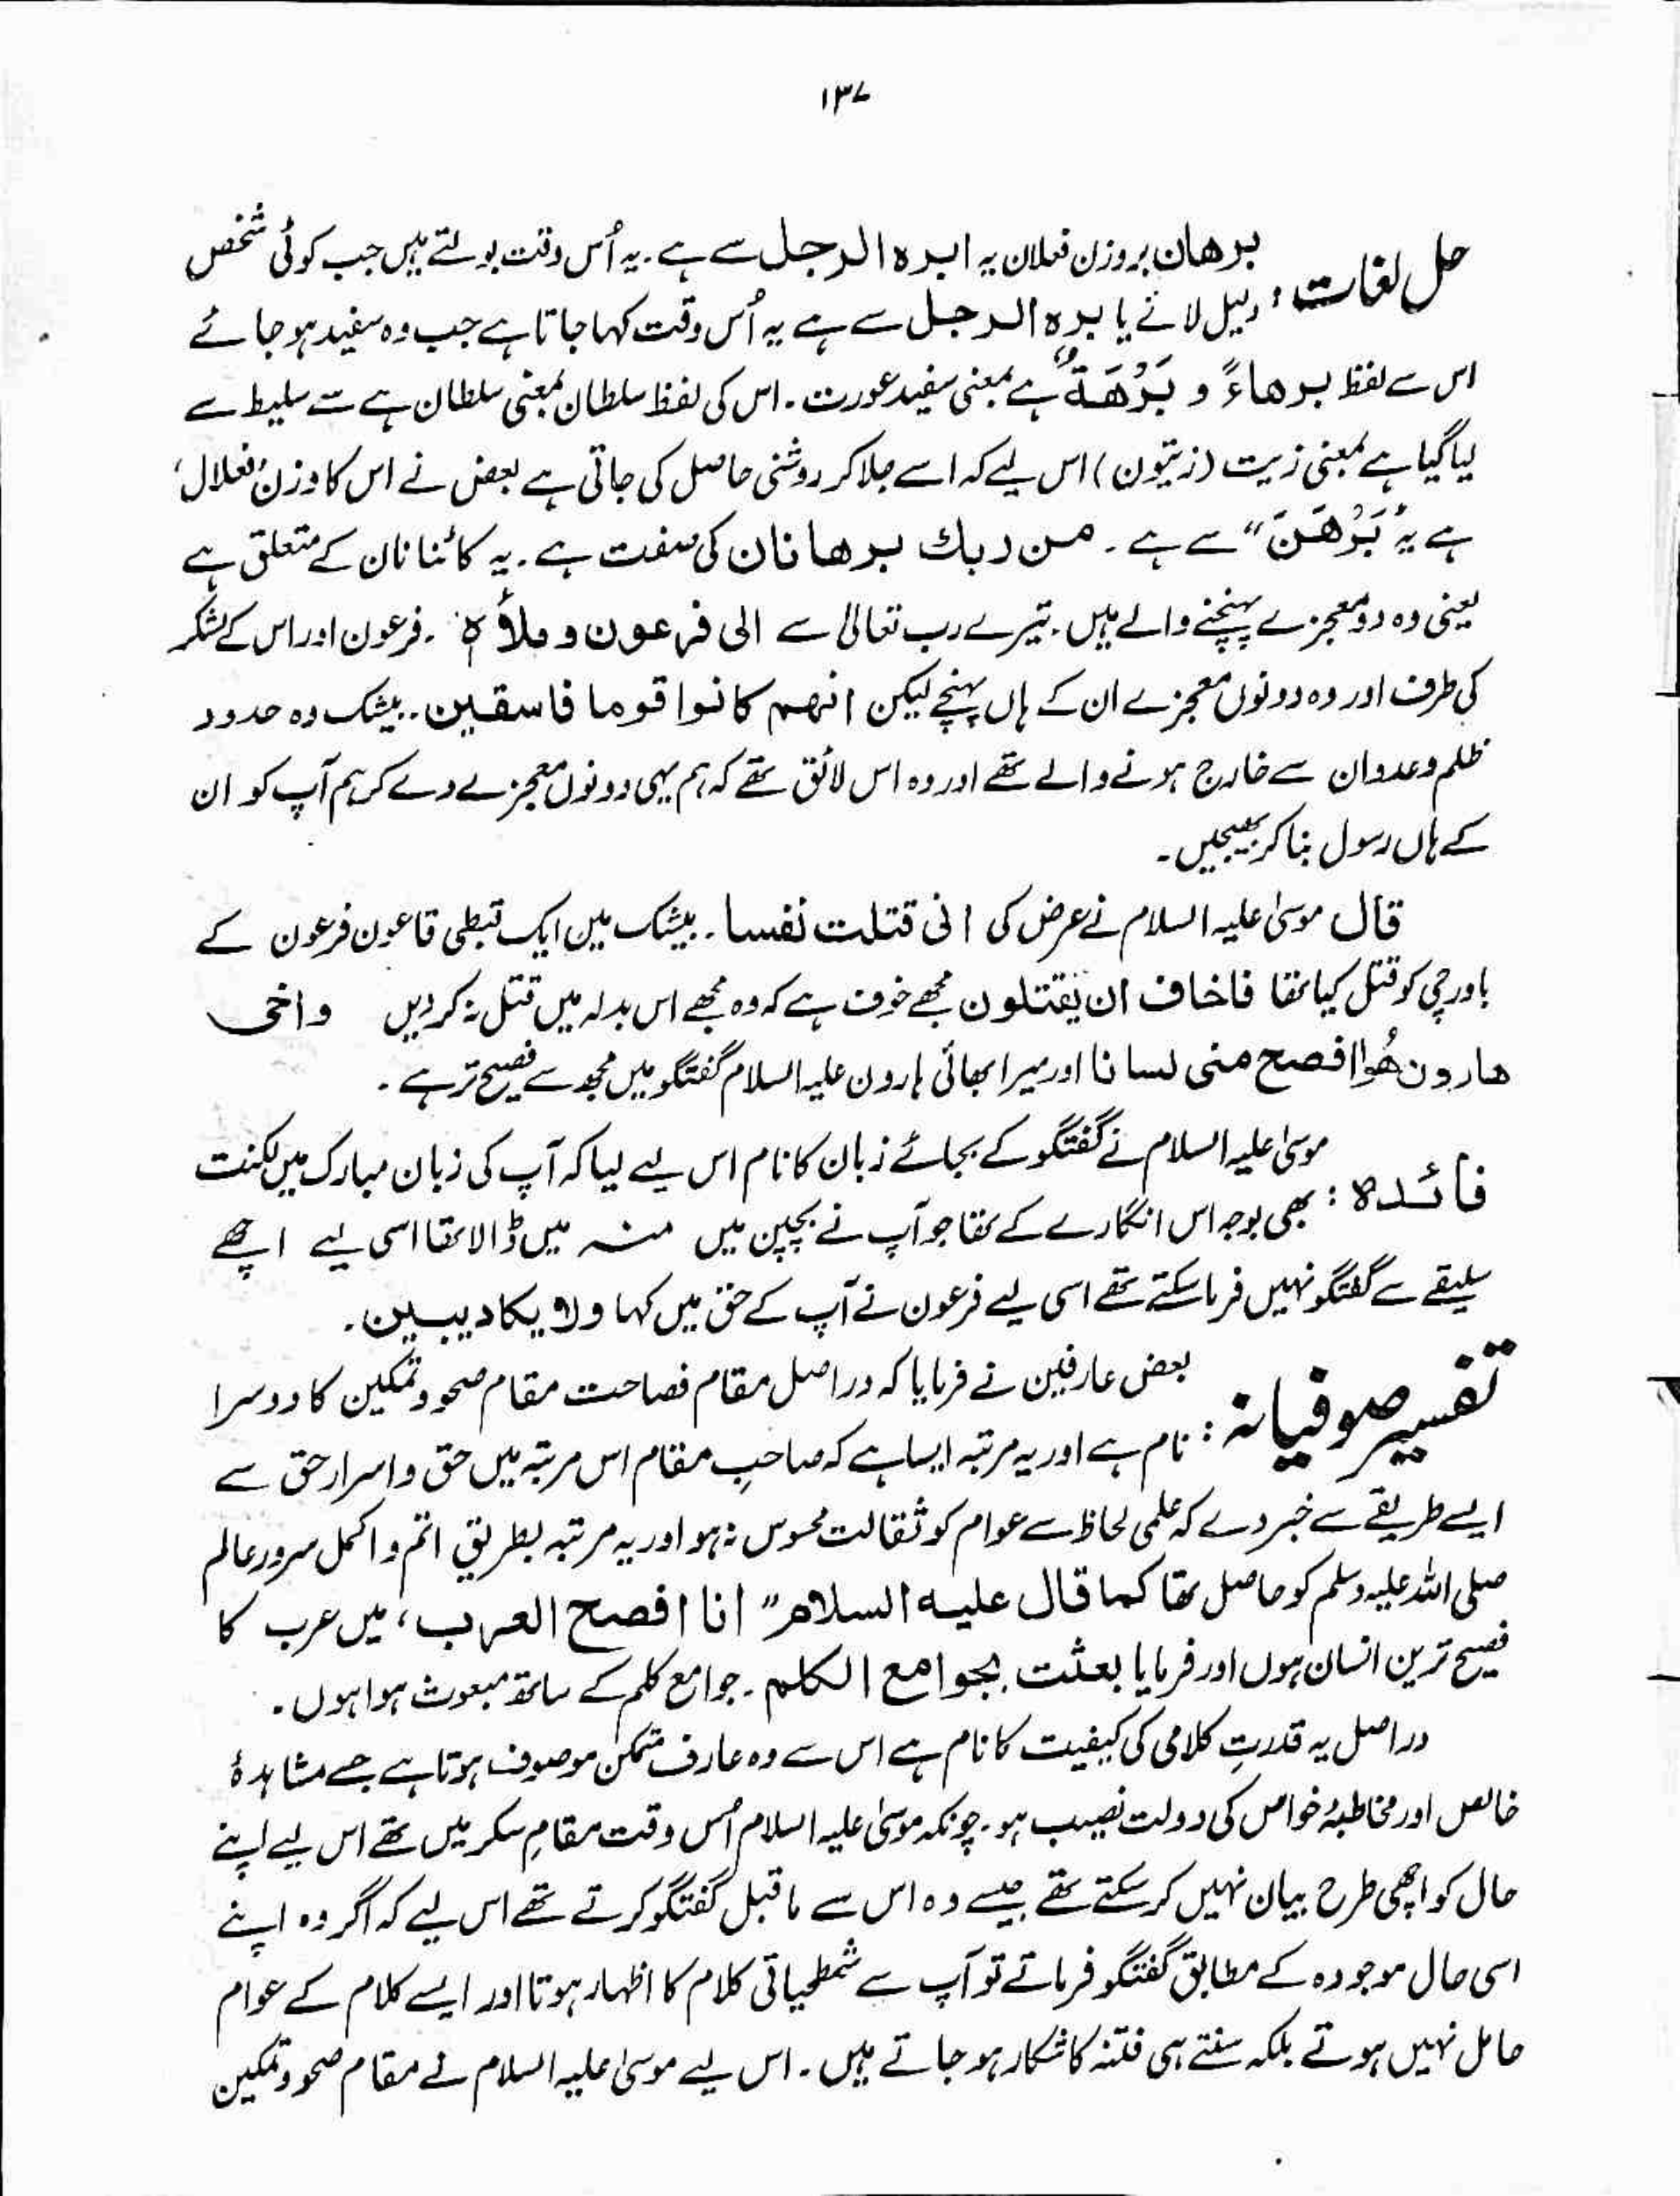 ۱۳۷
حل لغات : برھان بروزن فعلان یہ ابرہ الرجل سے ہے ۔ یہ اُس وقت بولتے ہیں جب کوئی شخص
دلیل لائے یا برہ الرجل سے ہے یہ اُس وقت کہا جاتا ہے جب وہ سفید ہو جائے
اس سے لفظ برھاءً و بَرْھَةٌ ہے بمعنی سفید عورت ۔ اس کی لفظ سلطان بمعنی سلطان ہے سے سلیط سے
لیا گیا ہے بمعنی زیت (زیتون) اس لیے کہ اسے جلا کر روشنی حاصل کی جاتی ہے بعض نے اس کا وزن فعلال
ہے یہ بَرْھَنَ“ سے ہے ۔ من ربك برھانان کی صفت ہے ۔ یہ کائنانان کے متعلق ہے
یعنی وہ دو معجزے پہنچنے والے ہیں ۔ تیرے رب تعالیٰ سے الی فرعون و ملأہ ۔ فرعون اور اس کے لشکر
کی طرف اور وہ دونوں معجزے ان کے ہاں پہنچے لیکن انھم کانوا قوما فاسقین ۔ بیشک وہ حدود
ظلم و عدوان سے خارج ہونے والے تھے اور وہ اس لائق تھے کہ ہم یہی دونوں معجزے دے کر ہم آپ کو ان
کے ہاں رسول بنا کر بھیجیں ۔
قال موسیٰ علیہ السلام نے عرض کی انی قتلت نفسا ۔ بیشک میں ایک قبطی قاعون فرعون کے
باورچی کو قتل کیا تھا فاخاف ان یقتلون مجھے خوف ہے کہ وہ مجھے اس بدلہ میں قتل نہ کر دیں واخی
ھارون ھُوا افصح منی لسانا اور میرا بھائی ہارون علیہ السلام گفتگو میں مجھ سے فصیح تر ہے ۔
فائدہ : موسیٰ علیہ السلام نے گفتگو کے بجائے زبان کا نام اس لیے لیا کہ آپ کی زبان مبارک میں لکنت
بھی بوجہ اس انگارے کے تھا جو آپ نے بچپن میں منہ میں ڈالا تھا اسی لیے اچھے
سلیقے سے گفتگو نہیں فرما سکتے تھے اسی لیے فرعون نے آپ کے حق میں کہا ولا یکاد یبین ۔
تفسیر صوفیانہ : بعض عارفین نے فرمایا کہ دراصل مقام فصاحت مقام صحو و تمکین کا دوسرا
نام ہے اور یہ مرتبہ ایسا ہے کہ صاحبِ مقام اس مرتبہ میں حق و اسرار حق سے
ایسے طریقے سے خبر دے کہ علمی لحاظ سے عوام کو ثقالت محسوس نہ ہو اور یہ مرتبہ بطریق اتم و اکمل سرور عالم
صلی اللہ علیہ وسلم کو حاصل تھا کما قال علیہ السلام ” انا افصح العرب ، میں عرب کا
فصیح ترین انسان ہوں اور فرمایا بعثت بجوامع الکلم ۔ جوامع کلم کے ساتھ مبعوث ہوا ہوں ۔
دراصل یہ قدرتِ کلامی کی کیفیت کا نام ہے اس سے وہ عارف متمکن موصوف ہوتا ہے جسے مشاہدۂ
خالص اور مخاطبۂ خواص کی دولت نصیب ہو ۔ چونکہ موسیٰ علیہ السلام اُس وقت مقامِ سکر میں تھے اس لیے اپنے
حال کو اچھی طرح بیان نہیں کر سکتے تھے جیسے وہ اس سے ماقبل گفتگو کرتے تھے اس لیے کہ اگر وہ اپنے
اسی حال موجودہ کے مطابق گفتگو فرماتے تو آپ سے شطحیاتی کلام کا اظہار ہوتا اور ایسے کلام کے عوام
حامل نہیں ہوتے بلکہ سنتے ہی فتنہ کا شکار ہو جاتے ہیں ۔ اس لیے موسیٰ علیہ السلام نے مقام صحو و تمکین